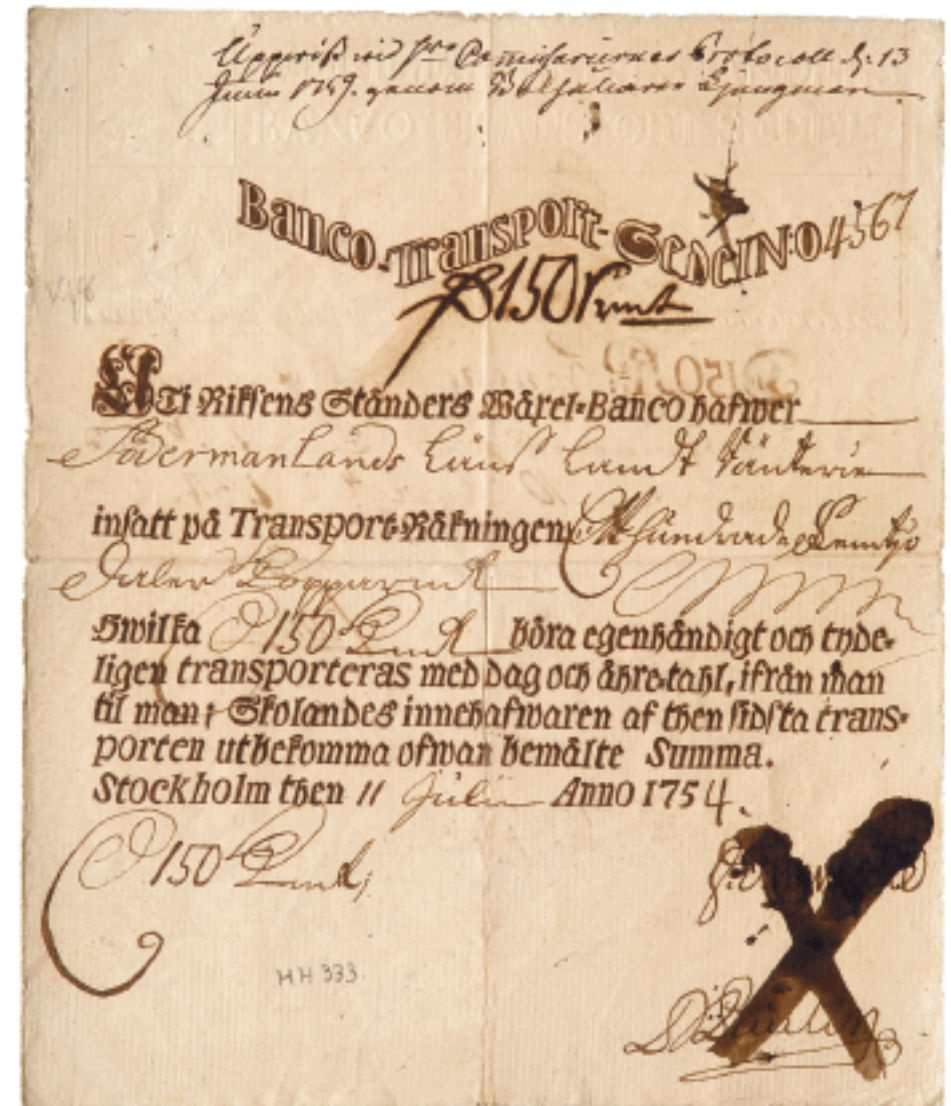 13
Junii 1759. genom
Banco-Transport-Sedel N:o 4567
D 150 kmt
UTi Riksens Ständers Wäxel-Banco hafwer
Södermanlands Läns Landt Ränterie
insatt på Transport-Räkningen Ett Hundrade Femtijo
Daler Kopparmt
Hwilka D 150 Kmt böra egenhändigt och tyde-
ligen transporteras med dag och åhre-tahl, ifrån man
til man; Skolandes innehafwaren af then sidsta trans-
porten utbekomma ofwan bemälte Summa.
Stockholm then 11 Julii Anno 1754.
D 150 Kmt
HH 333.